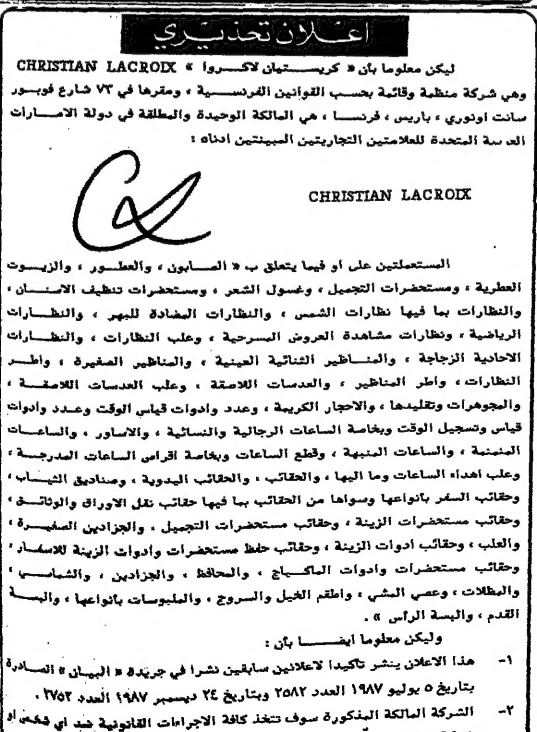 اعلان تحذيري
ليكن معلوما بأن « كريستيان لاكروا » CHRISTIAN LACROIX
وهي شركة منظمة وقائمة بحسب القوانين الفرنسية ، ومقرها في ٧٣ شارع فوبور
سانت اونوري ، باريس ، فرنسا ، هي المالكة الوحيدة والمطلقة في دولة الامارات
العربية المتحدة للعلامتين التجاريتين المبينتين ادناه :
CHRISTIAN LACROIX
المستعملتين على او فيما يتعلق ب « الصابون ، والعطور ، والزيوت
العطرية ، ومستحضرات التجميل ، وغسول الشعر ، ومستحضرات تنظيف الاسنان ،
والنظارات بما فيها نظارات الشمس ، والنظارات المضادة للبهر ، والنظارات
الرياضية ، ونظارات مشاهدة العروض المسرحية ، وعلب النظارات ، والنظارات
الاحادية الزجاجة ، والمناظير الثنائية العينية ، والمناظير الصغيرة ، واطر
النظارات ، واطر المناظير ، والعدسات اللاصقة ، وعلب العدسات اللاصقة ،
والمجوهرات وتقليدها ، والاحجار الكريمة ، وعدد وادوات قياس الوقت وعدد وادوات
قياس وتسجيل الوقت وبخاصة الساعات الرجالية والنسائية ، والاساور ، والساعات
المنمنمة ، والساعات المنبهة ، وقطع الساعات وبخاصة اقراص الساعات المدرجة ،
وعلب اهداء الساعات وما اليها ، والحقائب ، والحقائب اليدوية ، وصناديق الثياب ،
وحقائب السفر بأنواعها وسواها من الحقائب بما فيها حقائب نقل الاوراق والوثائق ،
وحقائب مستحضرات الزينة ، وحقائب مستحضرات التجميل ، والجزادين الصغيرة ،
والعلب ، وحقائب ادوات الزينة ، وحقائب حفظ مستحضرات وادوات الزينة للاسفار ،
وحقائب مستحضرات وادوات الماكياج ، والمحافظ ، والجزادين ، والشماسي ،
والمظلات ، وعصي المشي ، واطقم الخيل والسروج ، والملبوسات بأنواعها ، والبسة
القدم ، والبسة الرأس » .
وليكن معلوما ايضا بأن :
١- هذا الاعلان ينشر تأكيدا لاعلانين سابقين نشرا في جريدة « البيان » الصادرة
بتاريخ ٥ يوليو ١٩٨٧ العدد ٢٥٨٢ وبتاريخ ٢٤ ديسمبر ١٩٨٧ العدد ٢٧٥٢ .
٢- الشركة المالكة المذكورة سوف تتخذ كافة الاجراءات القانونية ضد اي شخص او